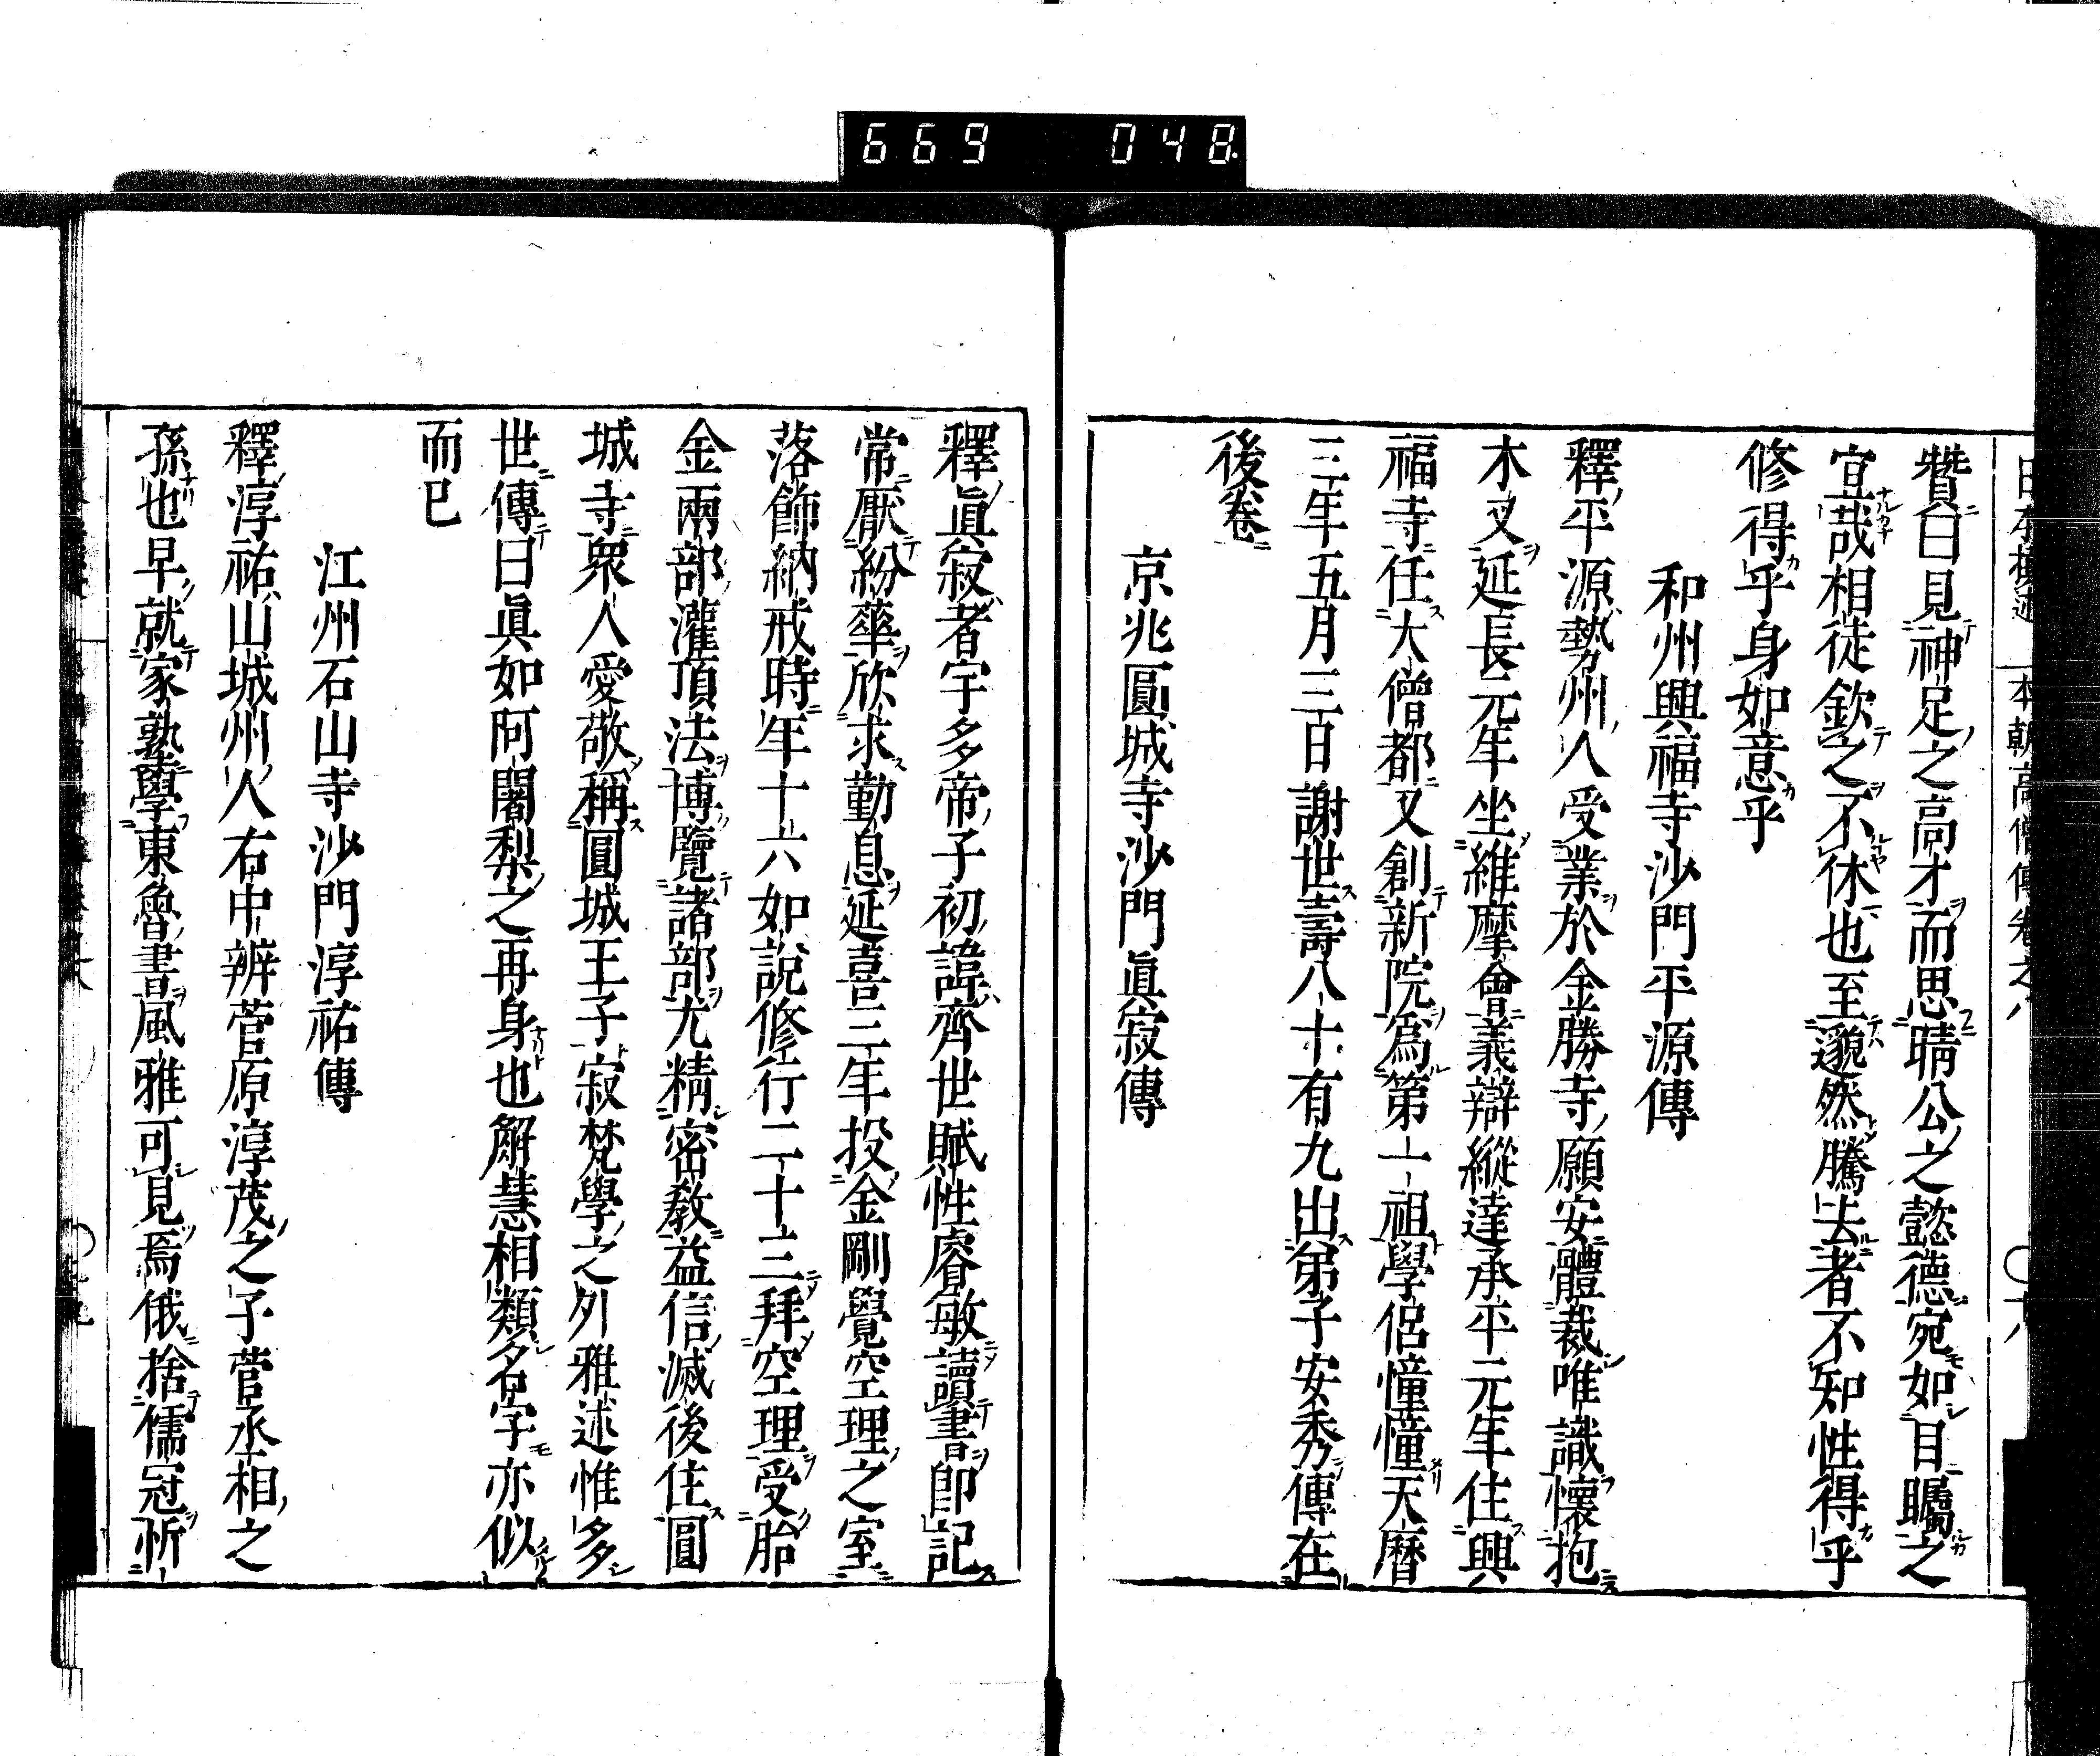 669 048
贊曰見神足之高才而思晴公之懿德宛如目矚之
宜哉相徒欽之不休也至邈然騰去者不知性得乎
修得乎身如意乎
和州興福寺沙門平源傳
釋平源勢州人受業於金勝寺願安體裁唯識懷抱
木叉延長元年坐維摩會義辯縱達承平元年住興
福寺任大僧都又創新院爲第一祖學侶憧憧天曆
三年五月三日謝世壽八十有九出弟子安秀傳在
後卷
京兆圓城寺沙門眞寂傳
釋眞寂者宇多帝子初諱齊世賦性睿敏讀書卽記
常厭紛華欣求勤息延喜三年投金剛覺空理之室
落飾納戒時年十六如說修行二十三拜空理受胎
金兩部灌頂法博覽諸部尤精密教益信滅後住圓
城寺衆人愛敬稱圓城王子寂梵學之外雅述惟多
世傳曰眞如阿闍梨之再身也解慧相類名字亦似
而已
江州石山寺沙門淳祐傳
釋淳祐山城州人右中辨菅原淳茂之子菅丞相之
孫也早就家塾學東魯書風雅可見焉俄捨儒冠忻